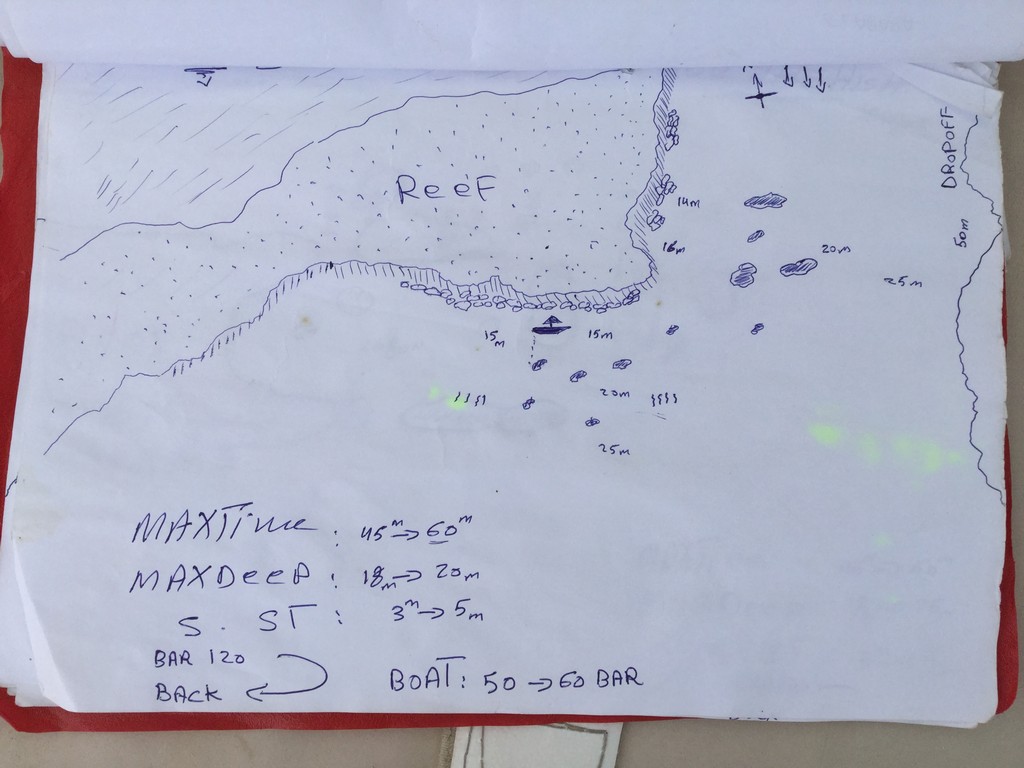 DROPOFF
ReeF
14m
16m
20m
50m
25m
15m
15m
20m
25m
MAXTime : 45m → 60m
MAXDeeP : 18m → 20m
S. ST : 3m → 5m
BAR 120
BACK
BOAT: 50 → 60 BAR